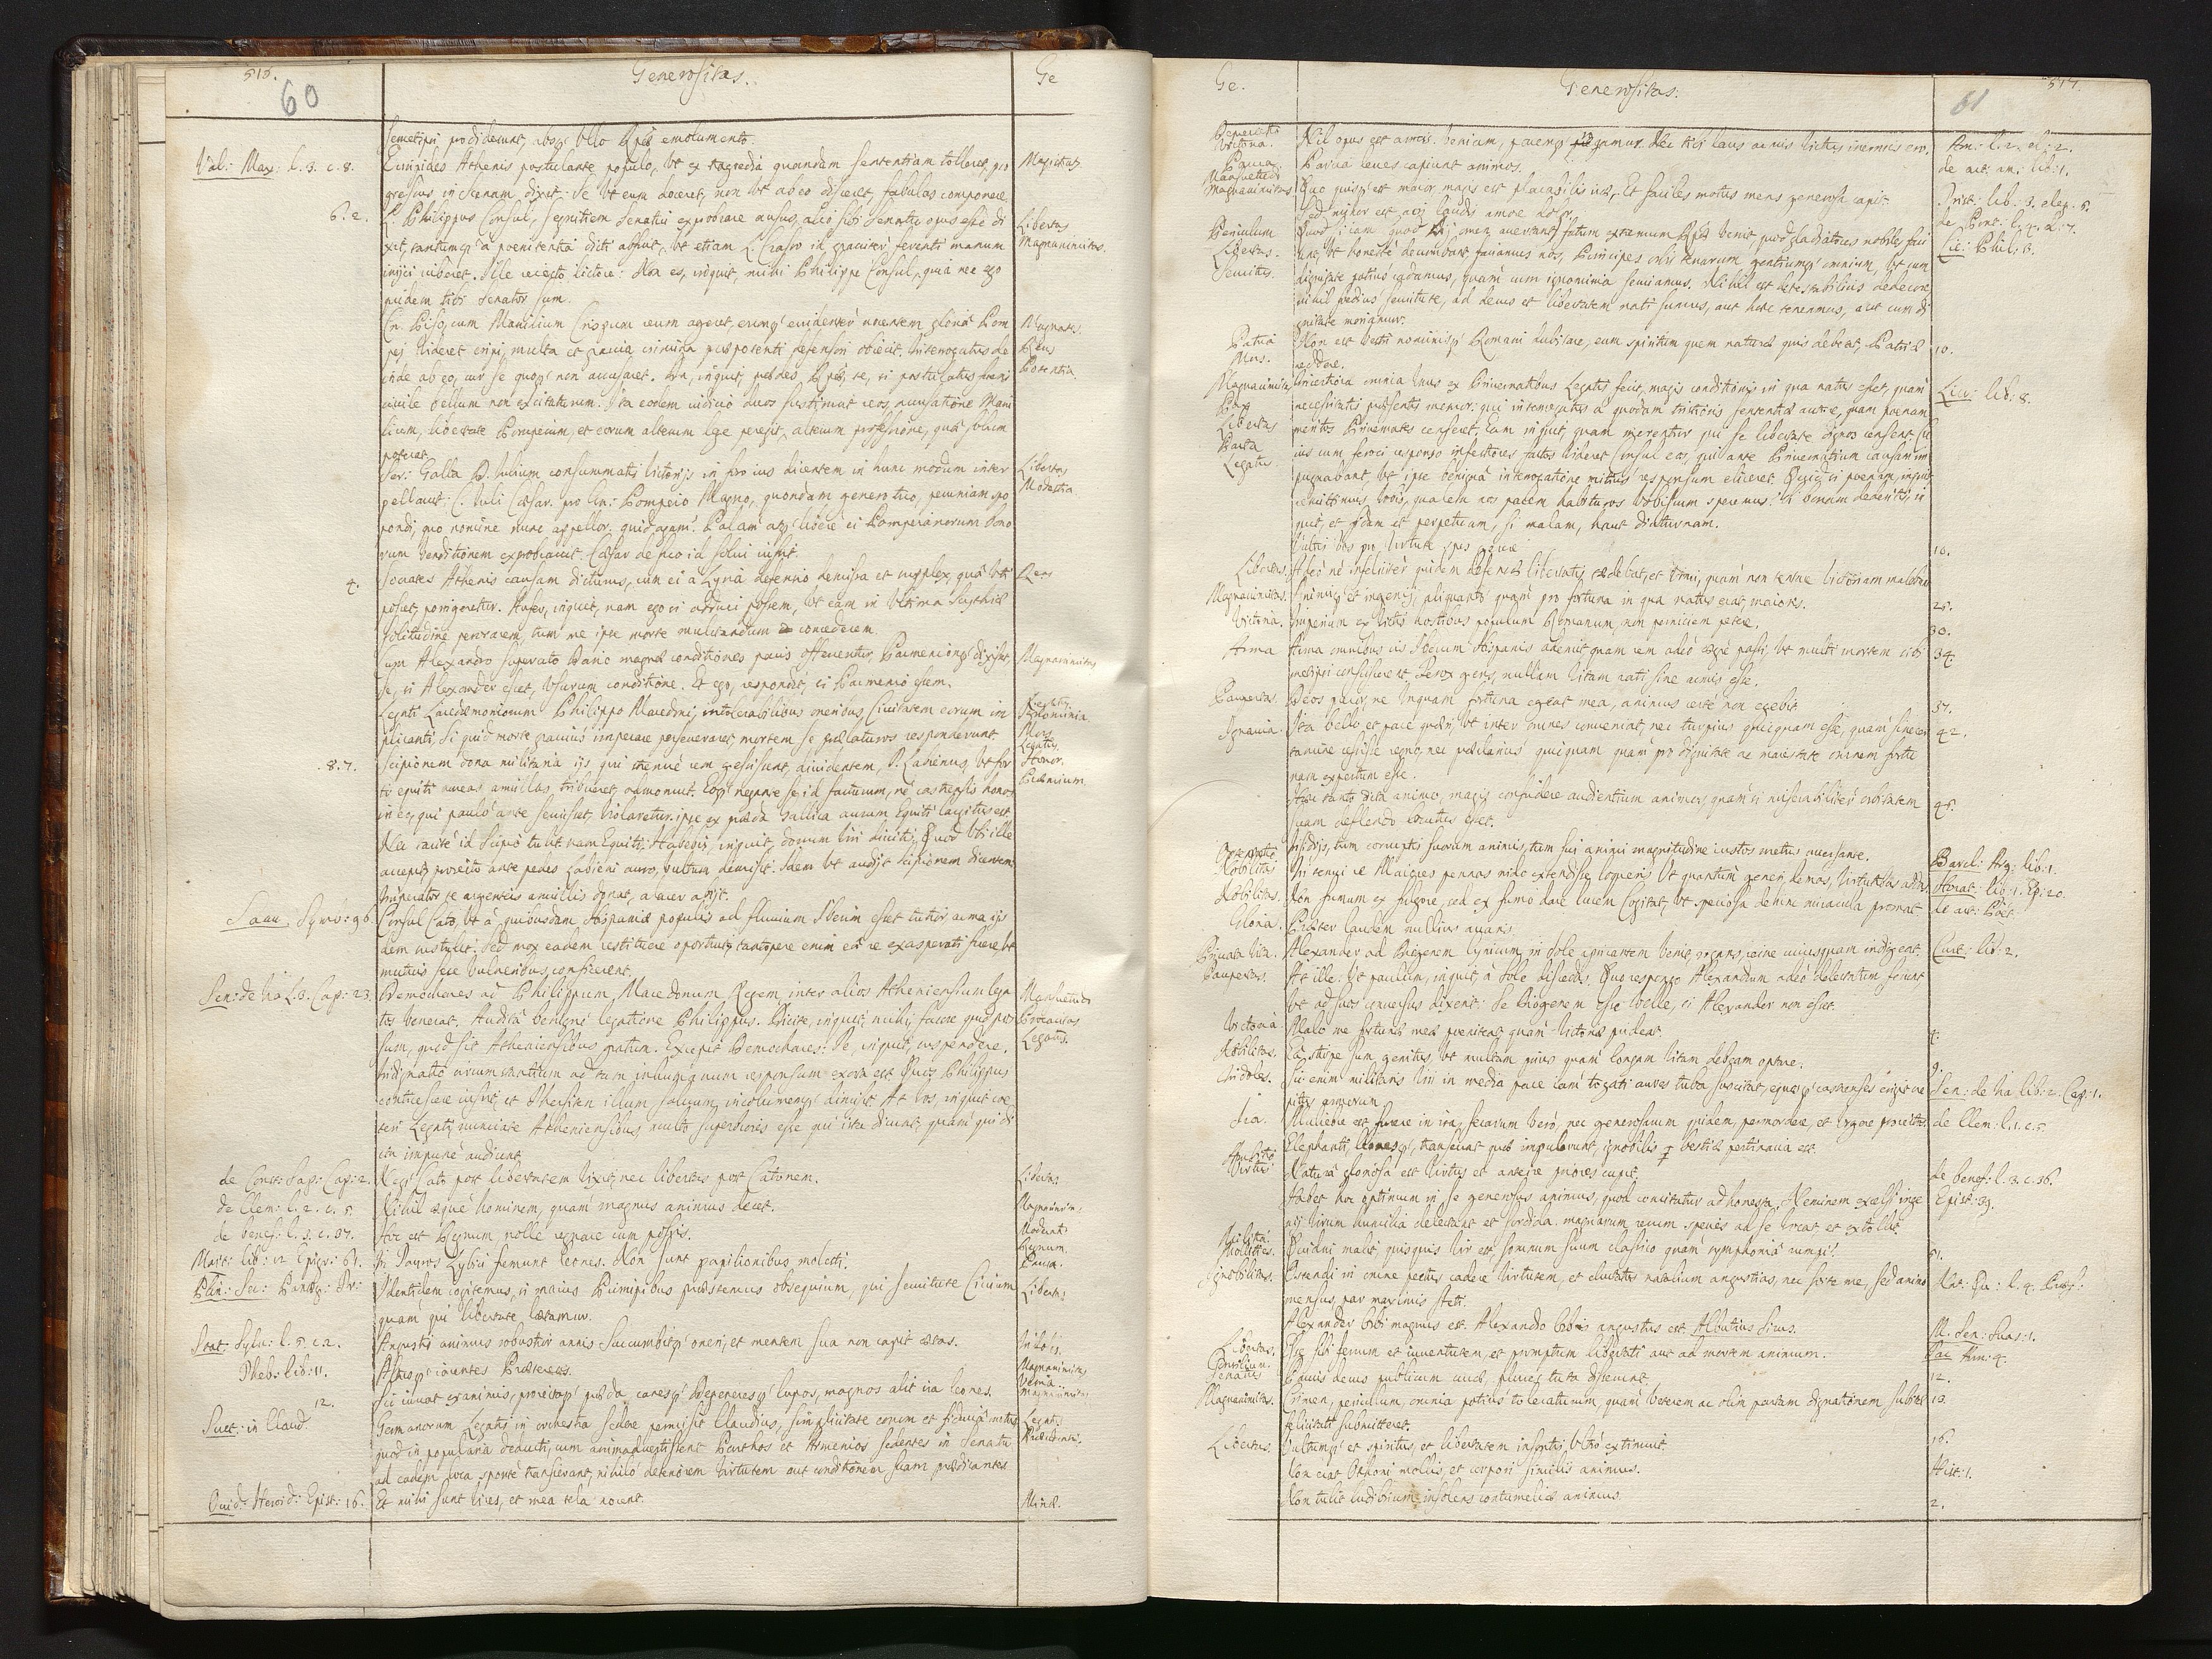 513.
60
Generositas.
Ge
semetipsi prodiderunt, absq; ullo emolumento.
Val: Max: l. 3. c. 8.
Euripides Athenis postulante populo, ut ex tragedia quandam sententiam tolleret, pro
gressus in scenam dixit: Se ut eum doceret, non ut ab eo disceret, fabulas componere.
6. 2.
L. Philippus Consul, segnitiem Senatui exprobrare ausus, alio sibi Senatu opus esse di
xit, tantumq; a poenitentia dicti abfuit, ut etiam L. Crasso id graviter ferenti manum
injici iuberet. Ille reiecto lictore: Non es, inquit, mihi Philippe Consul, quia nec ego
quidem tibi Senator sum.
Libertas
Magnanimitas.
Cn. Piso, cum Manilium Crispum reum ageret, eumq; evidenter nocentem gratia Pom
pej videret eripi, multa et gravia crimina praepotenti defensori obiecit. Interrogatus de
inde ab eo, cur se quoq; non accusaret. Da, inquit, praedes te, si postulatus fueris
civile bellum non excitaturum. Ita eodem iudicio duos sustinuit reos, accusatione Mani
lium, libertate Pompeium, et eorum alterum lege peregit, alterum professione, qua solum
poterat.
Reus
Potentia.
Ser: Galba D. Iulium consummatis victorijs in foro ius dicentem in hunc modum inter
pellavit: C. Iuli Caesar. pro Cn: Pompeio Magno, quondam genero tuo, pecuniam spo
pondi, quo nomine nunc appellor. quid agam? Palam atq; libere ei Pompeianorum bono
rum venditionem exprobravit. Caesar de fisco id solui iussit.
Libertas
Modestia
4.
Socrates Athenis causam dicturus, cum ei a Lysia defensio demissa et supplex, qua uti
posset, porrigeretur. Aufer, inquit, nam ego si adduci possem, ut eam in ultima Scythiae
solitudine perorarem, tum me ipse morte mulctandum concederem.
Reus
Cum Alexandro superato Dario magnae conditiones pacis offerrentur, Parmenioq; dixisset
se, si Alexander esset, usurum conditione. Et ego, respondit, si Parmenio essem.
Magnanimitas
Legati Lacedaemoniorum Philippo Macedoni, intolerabilibus oneribus Civitatem eorum im
plicanti, si quid morte gravius imperare perseveraret, mortem se praelaturos responderunt
Ignominia
Mors
Legatus
8. 7.
Scipionem dona militaria ijs qui strenue rem gessissent, dividentem, T. Labienus, ut for
ti equiti aureas armillas tribueret, admonuit. Eoq; negante se id facturum, ne castrensis honos
in eo, qui paulo ante seruisset, violaretur: ipse ex praeda Gallica aurum Equiti largitus est.
Nec tacite id Scipio tulit nam Equiti: Habebis, inquit, donum viri divitis. Quod ubi ille
accepit, proiecto ante pedes Labieni auro, vultum demisit. Idem ut audijt Scipionem dicentem
Imperator te argenteis armillis donat, alacer abijt.
Honor.
Praemium.
Saau. Symb: 96
Consul Cato, ut a quibusdam Hispaniae populis ad fluvium Iberim esset tutior arma ijs
dem sustulit: Sed mox eadem restituere oportuit, tantopere enim ea re exasperati fuere, ut
mutuis sese vulneribus conficerent.
Sen: de Ira l. 3. Cap: 23.
Demochares ad Philippum Macedonum Regem, inter alios Atheniensium lega
tos venerat. Audita benigne legatione Philippus. Dicite, inquit, mihi, facere quid pos
sum, quod sit Atheniensibus gratum. Excepit Demochares: Te, inquit, suspendere.
Indignatio circumstantium ad tam inhumanum responsum exorta est. Quos Philippus
conticescere iussit, et Thersiten illum salvum, incolumemq; dimisit. At vos, inquit cae
teri Legati, nunciate Atheniensibus, multo superbiores esse qui ista dicunt, quam qui di
cta impune audiunt.
Mansuetudo
Legatus.
de Const: Sap: Cap: 2.
Neq; Cato post libertatem vixit, nec libertas post Catonem.
Libertas.
de Clem: l. 2. c. 5.
Nihil aeque hominem, quam magnus animus decet.
Magnanim:
de benef: l. 3. c. 37.
Hoc est Regnum nolle regnare cum possis.
Moderat:
Regnum.
Mart: lib: 12 Epigr: 61.
In Tauros Lybici fremunt leones. Non sunt papilionibus molesti.
Plin: Sec: Paneg: Tr:
Identidem cogitemus, si maius Principibus praestemus obsequium, qui servitute Civium
quam qui libertate laetamur.
Libert:
Stat: Sylu: l. 5. c. 2.
Angusti animus robustior annis Succumbitq; oneri; et mentem sua non capit aetas.
Indoles.
Theb: lib: 11.
Altaq; iuvantes Praetereas.
12.
Sic iuvat exanimis, proiectaq; praeda, canesq; Degeneresq; lupos, magnos alit ira leones.
Magnanimitas
Suet: in Claud:
Germanorum Legatis in orchestra sedere permisit Claudius, simplicitate eorum et fiducia motus
quod in popularia deducti, cum animadvertissent Parthos et Armenios sedentes in Senatu
ad eadem loca sponte transierant, nihilo deteriorem virtutem aut conditionem suam praedicantes
Legat:
Ouid: Heroid: Epist: 16.
Et mihi sunt vires, et mea tela nocent.
Minae.
Ge.
Generositas.
61
517.
Victoria.
Nil opus est armis. Veniam, pacemq; rogamus. Nec tibi laus armis victus inermis ero.
Am: l. 2. el: 2.
Parva leves capiunt animos.
de art: am: lib: 1.
Mansuetudo
Magnanimitas
Quo quisq; est maior magis est placabilis irae, Et faciles motus mens generosa capit.
Trist: lib: 3. eleg: 5.
Sed minor est acri laudis amore dolor.
de Pont: l. 4. el: 7.
Periculum
Libertas.
Servitus.
Quod si iam quod Dij omen avertant, fatum extremum Rpb venit, quod gladiatores nobiles faci
unt, ut honeste decumbant, faciamus nos, Principes orbis terrarum gentiumq; omnium, ut cum
dignitate potius cadamus, quam cum ignominia serviamus. Nihil est detestabilius dedecore
nihil foedius servitute, ad decus et libertatem nati sumus, aut haec teneamus, aut cum di
gnitate moriamur.
Cic: Phil: 13.
Patria
Mors.
Non est vestri nominisq; Romani dubitare, eum spiritum quem naturae quis debeat, Patriae
reddere.
10.
Magnanimitas
Pax
Libertas
Legatus.
Incertiora omnia unus ex Privernatibus Legatis fecit, magis conditionis in qua natus esset, quam
necessitatis praesentis memor: qui interrogatus a quodam tristioris sententiae autore, quam poenam
meritos Privernates censeret. Eam inquit, quam merentur qui se libertate dignos censent. Cu
ius cum feroci responso infestiores factos videret Consul eos, qui ante Privernatium causam im
pugnabant, ut ipse benigna interrogatione mitius responsum eliceret. Quid si poenam, inquit
remittimus, vobis, qualem nos pacem habituros vobiscum speremus? Si bonam dederitis, in
quit, et fidam et perpetuam, si malam, haut diuturnam.
Liv: lib: 8.
10.
Libertas.
Adeo ne infeliciter quidem defensae libertatis taedebat, et vinci, quam non tentare victoriam malebant
Magnanimitas.
Animiq; et ingenij aliquanto quam pro fortuna in qua natus erat, maioris.
25.
Victoria.
Imperium ex victis hostibus populum Romanum, non perniciem petere.
30.
Arma
Arma omnibus cis Iberum Hispanis ademit, quam rem adeo aegre passi, ut multi mortem sibi
metipsi consciscerent. Ferox gens, nullam vitam rati sine armis esse.
34.
Paupertas.
Deos quaeso, ne unquam fortuna egeat mea, animus certe non egebit.
37.
Ignavia.
Ita bello, et pace quaeri, ut inter omnes conveniat, nec turpius quicquam esse, quam sine cer
tamine cessisse regno, nec praeclarius quicquam quam pro dignitate ac maiestate omnem fortu
nam expertum esse.
42.
Haec tanto dicta animo, magis confudere audientium animos, quam si miserabiliter orbitatem
suam deflendo locutus esset.
45.
Insidijs, tum corruptis suorum animis, tum sui animi magnitudine iustos metus aversante.
Barcl: Arg: lib: 1.
Nobilitas
In tenui re Maiores pennas nido extendisse loqueris Ut quantum generi demas, virtutibus addas.
Horat: lib: 1. Ep: 20.
Nobilitas.
Non fumum ex fulgore, sed ex fumo dare lucem Cogitat, ut speciosa dehinc miracula promat.
de art: Poet:
Gloria.
Praeter laudem nullius avaris.
Privata vita.
Paupertas.
Alexander ad Diogenem Cynicum in sole apricantem venit, rogans, ecqua re cuiusquam indigeat.
At ille: Ut paullum, inquit, a Sole discedas. Quo responso Alexandrum adeo delectatum ferunt
ut ad suos conversus dixerit: Se Diogenem esse velle, si Alexander non esset.
Curt: lib: 2.
Victoria
Malo me fortunae meae poeniteat, quam victoriae pudeat.
4.
Nobilitas.
Ea stirpe sum genitus, ut multam prius quam longam vitam debeam optare.
9.
Indoles.
Sic enim militaris viri in media pace iam togati aures tuba suscitat, equosq; castrenses erigit cre
pitus armorum.
Sen: de Ira lib: 2. Cap: 1.
Ira.
Muliebre est furere in ira, ferarum vero, nec generosarum quidem, permordere, et urgere proiectos.
Elephanti, leonesq; transeunt quae impulerunt, ignobilis bestiae pertinacia est.
de Clem: l. 1. c. 5.
Virtus.
Natura gloriosa est virtus et anteire priores cupit.
de benef: l. 3. c. 36.
Habet hoc optimum in se generosus animus, quod concitatur ad honesta. Neminem excelsi inge
nij virum humilia delectant et sordida. magnarum rerum species ad se vocat et extollit.
Epist: 39.
Mollities.
Quidni malit, quisquis vir est, somnum suum classico quam symphonia rumpi?
51.
Ignobilitas.
Ostendi in omne pectus cadere virtutem, et eluctatus natalium angustias, nec sorte me, sed animo
mensus, par maximis steti.
Nat: Qu: l. 4. Praef:
Alexander orbi magnus est. Alexandro Orbis angustus est. Albutius Silus.
M. Sen: Suas: 1.
Libertas.
Esse sibi ferrum et iuventutem, et promptum libertati aut ad mortem animum.
Tac Ann: 4.
Periculum.
Paucis decus publicum curae, plures tuta disserunt.
12.
Magnanimitas.
Crimen, periculum, omnia potius toleraturum, quam veterem ac olim partam dignationem subitae
felicitati submitteret.
13.
Libertas.
Vultumq; et spiritus, et libertatem insontis ultro extimuit.
16.
Non erat Othoni mollis, et corpori similis animus.
Hist: 1.
Non tulit ludibrium insolens contumeliae animus.
2.